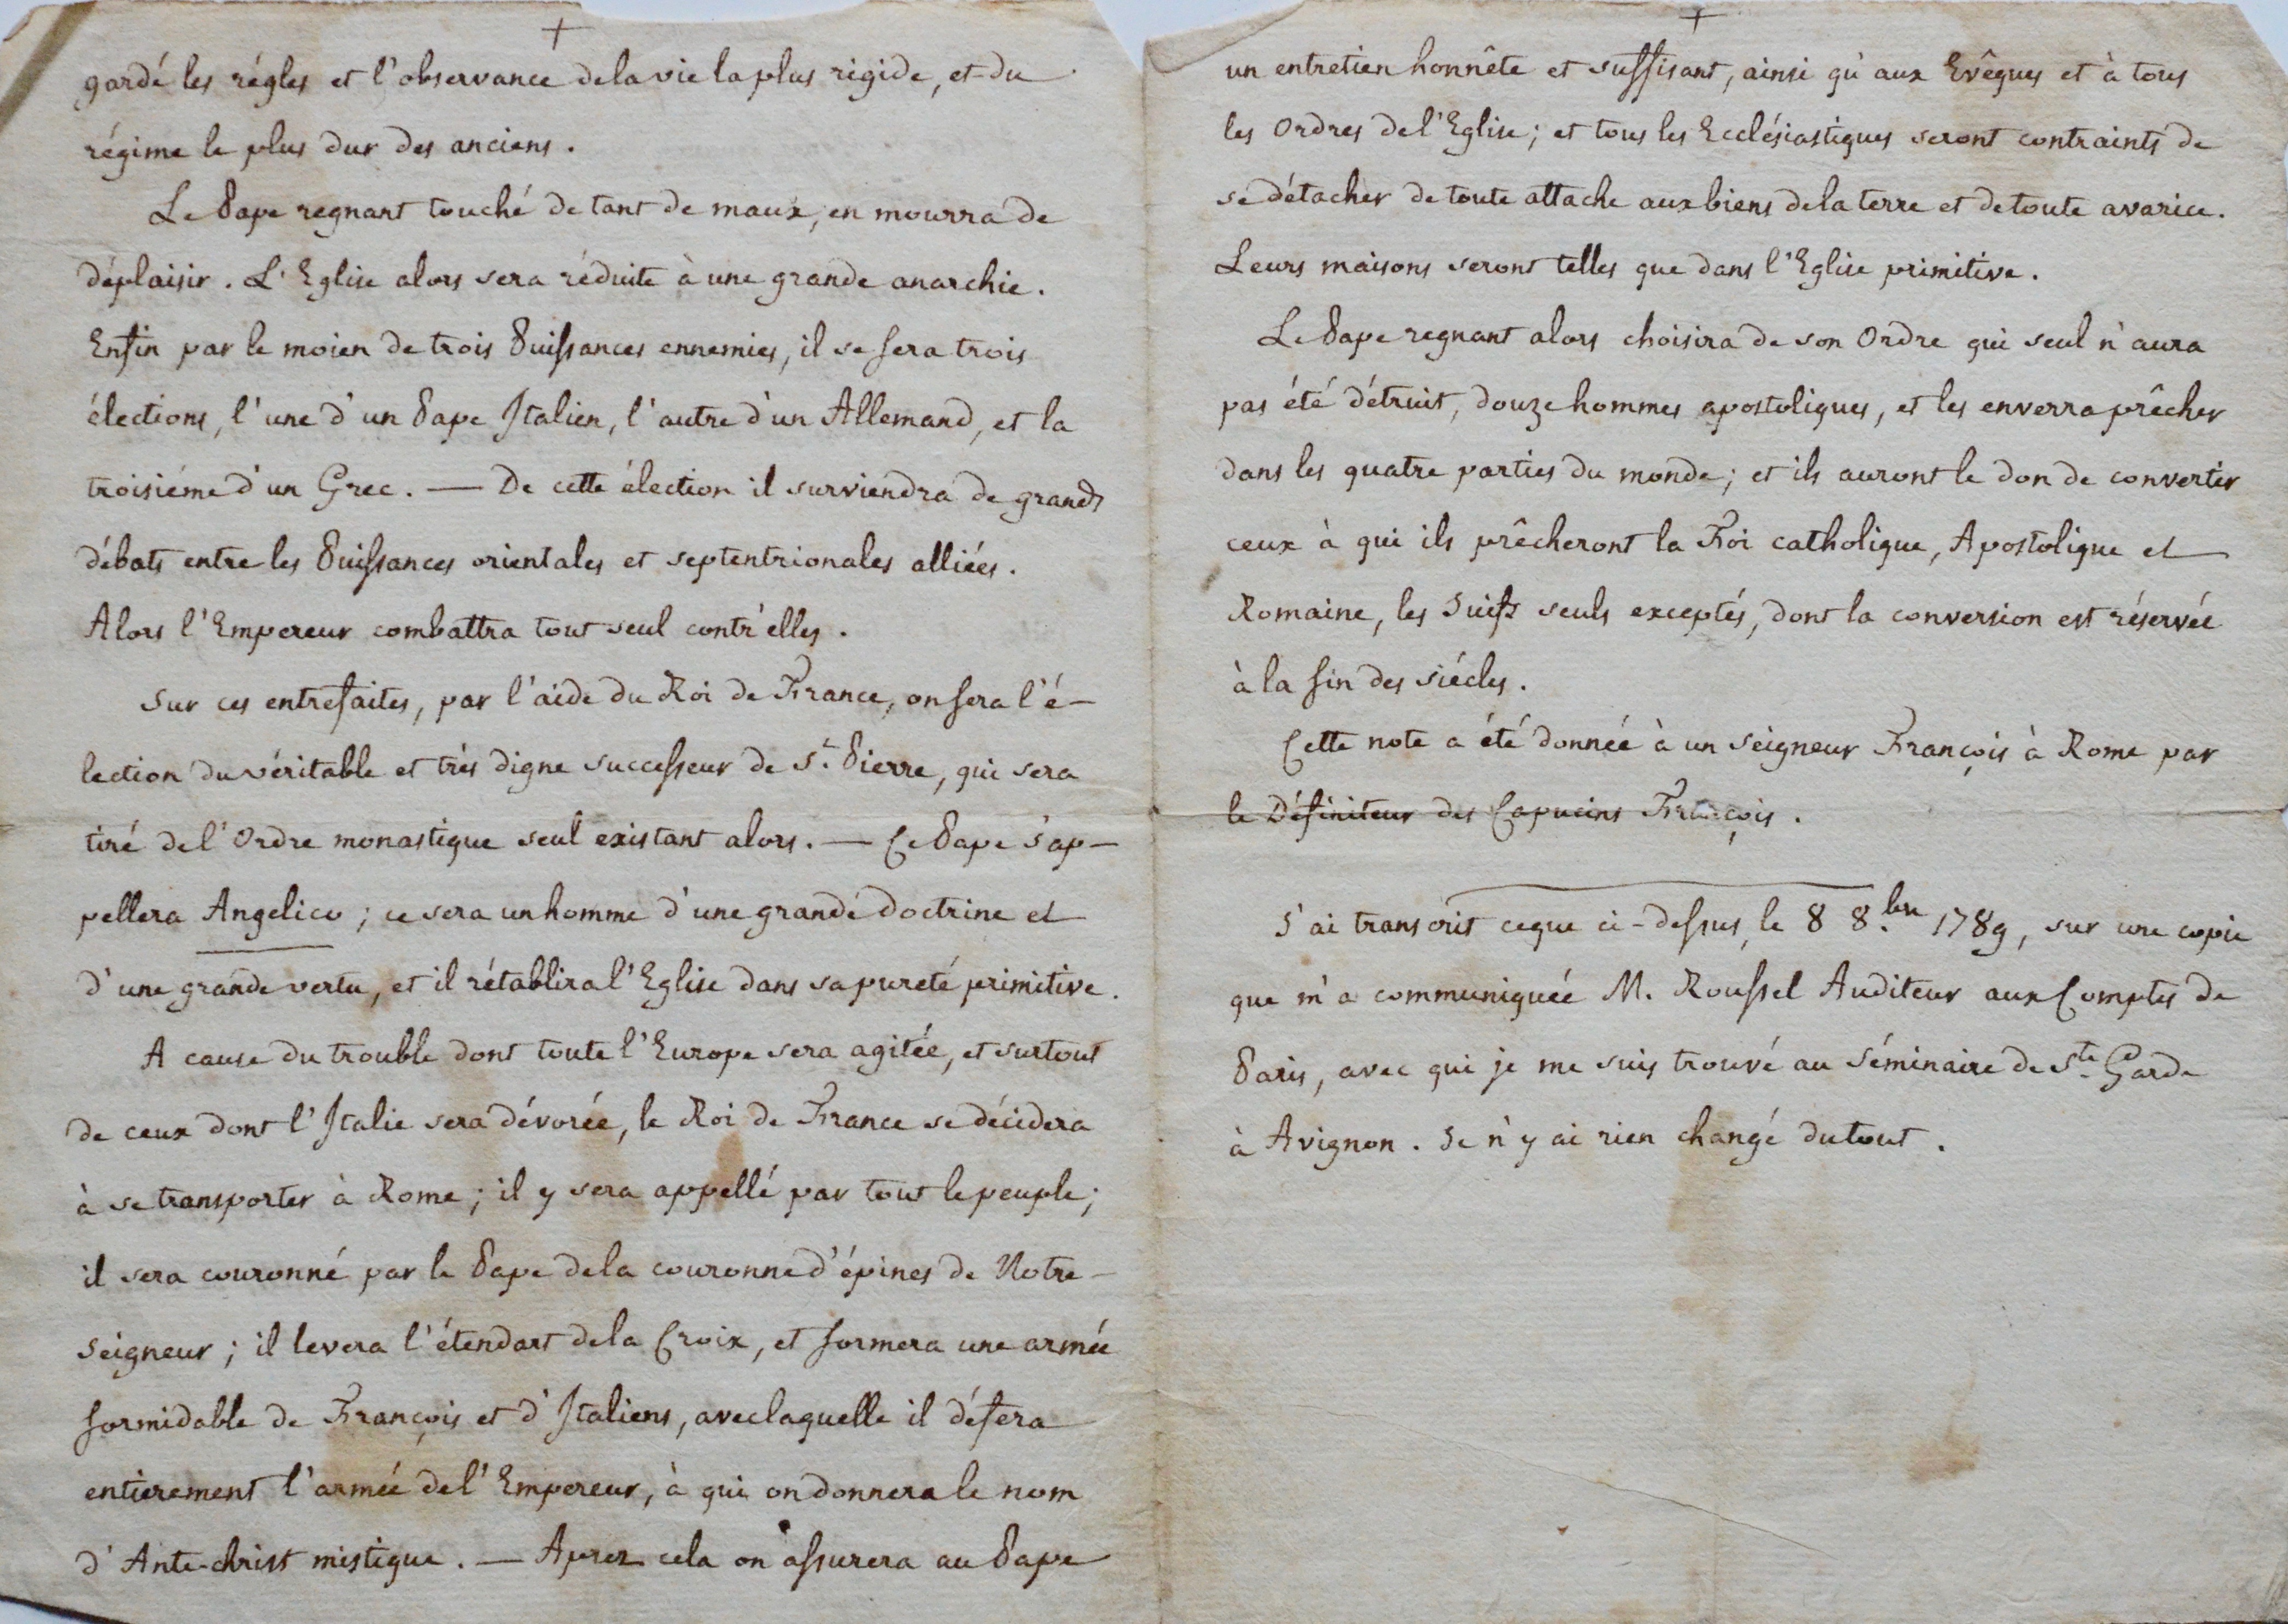 gardé les régles et l'observance de la vie la plus rigide, et du
régime le plus dur des anciens.
Le Pape regnant touché de tant de maux, en mourra de
déplaisir. L'Eglise alors sera réduite à une grande anarchie.
Enfin par le moien de trois Puissances ennemies, il se fera trois
élections, l'une d'un Pape Italien, l'autre d'un Allemand, et la
troisiéme d'un Grec. — De cette élection il surviendra de grands
débats entre les Puissances orientales et septentrionales alliées.
Alors l'Empereur combattra tout seul contr'elles.
Sur ces entrefaites, par l'aide du Roi de France, on fera l'é-
lection du véritable et trés digne successeur de St. Pierre, qui sera
tiré de l'Ordre monastique seul existant alors. — Ce Pape s'ap-
pellera Angelico; ce sera un homme d'une grande doctrine et
d'une grande vertu, et il rétablira l'Eglise dans sa pureté primitive.
A cause du trouble dont toute l'Europe sera agitée, et surtout
de ceux dont l'Italie sera dévorée, le Roi de France se décidera
à se transporter à Rome; il y sera appellé par tout le peuple;
il sera couronné par le Pape de la couronne d'épines de Notre-
Seigneur; il levera l'étendart de la Croix, et formera une armée
formidable de François et d'Italiens, avec laquelle il défera
entierement l'armée de l'Empereur, à qui on donnera le nom
d'Ante-christ mistique. — Aprez cela on assurera au Pape
un entretien honnête et suffisant, ainsi qu'aux Evêques et à tous
les Ordres de l'Eglise; et tous les Ecclésiastiques seront contraints de
se détacher de toute attache aux biens de la terre et de toute avarice.
Leurs maisons seront telles que dans l'Eglise primitive.
Le Pape regnant alors choisira de son Ordre qui seul n'aura
pas été détruit, douze hommes apostoliques, et les enverra prêcher
dans les quatre parties du monde; et ils auront le don de convertir
ceux à qui ils prêcheront la Foi catholique, Apostolique et
Romaine, les Juifs seuls exceptés, dont la conversion est réservée
à la fin des siécles.
Cette note a été donnée à un Seigneur François à Rome par
le Définiteur des Capucins François.
J'ai transcrit ceque ci-dessus, le 8 8.bre 1789, sur une copie
que m'a communiquée M. Roussel Auditeur aux Comptes de
Paris, avec qui je me suis trouvé au Séminaire de Ste. Garde
à Avignon. Je n'y ai rien changé du tout.